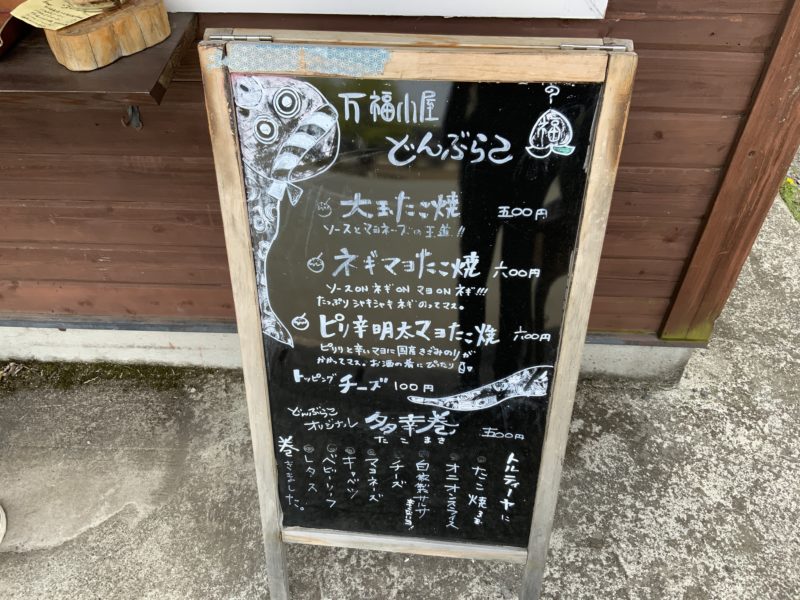 万福小屋
どんぶらこ
福
大玉たこ焼 五〇〇円
ソースとマヨネーズの王道!!
ネギマヨたこ焼 六〇〇円
ソースON ネギON マヨON ネギ!!!
たっぷりシャキシャキネギのってマス。
ピリ辛明太マヨたこ焼 六〇〇円
ピリリと辛いマヨに国産きざみのりが
かかってマス。お酒の肴にぴったり
トッピング チーズ 100円
どんぶらこ
オリジナル 多幸巻 五〇〇円
たこまき
トルティーヤに
たこ焼
オニオンスライス
自家製サルサ
チーズ
マヨネーズ
キャベツ
ベビーリーフ
レタス
巻きました。